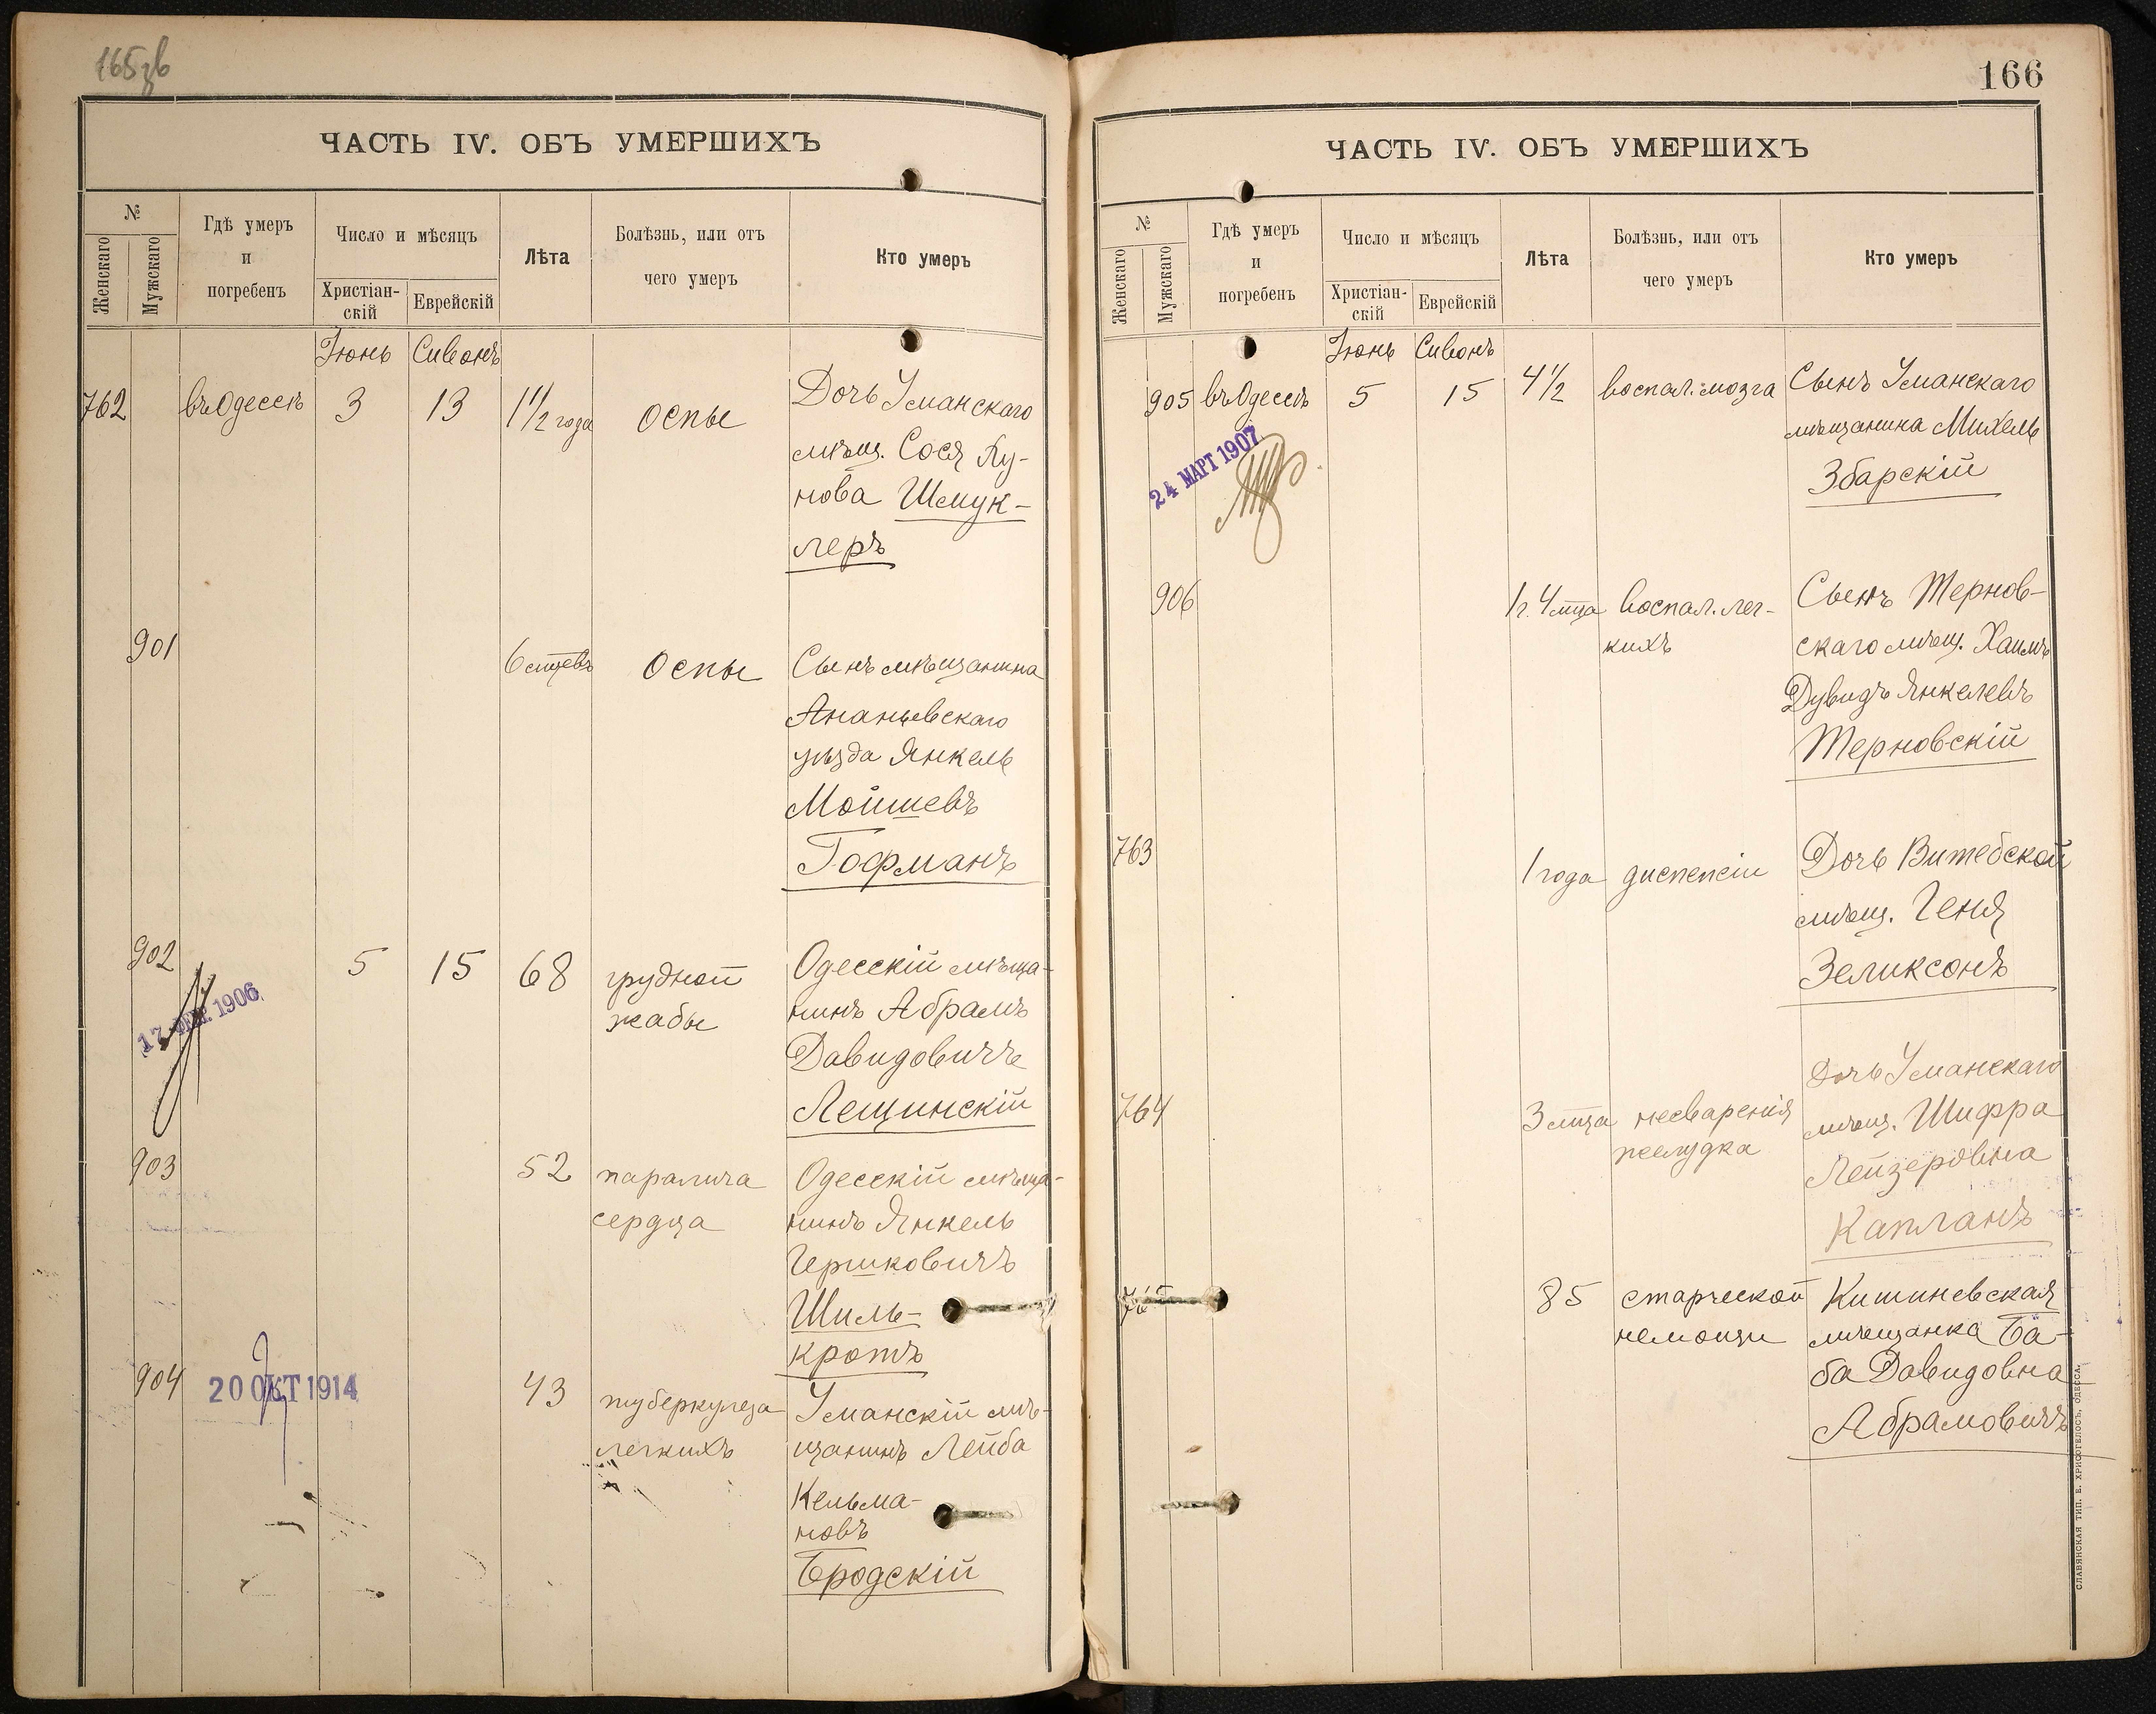 165зв
ЧАСТЬ IV. ОБЪ УМЕРШИХЪ
№
Женскаго
Мужскаго
Гдѣ умеръ
и
погребенъ
Число и мѣсяцъ
Христіан-
скій
Еврейскій
Лѣта
Болѣзнь, или отъ
чего умеръ
Кто умеръ
Іюнь Сивонъ
762 въ Одессѣ 3 13 1 1/2 года оспы Дочь Уманскаго
мѣщ. Сося Ку-
нова Шмук-
леръ
901 6 м-цевъ Оспы Сынъ мѣщанина
Ананьевскаго
уѣзда Янкель
Мойшевъ
Гофманъ
902 5 15 68 грудной Одесскій мѣща-
жабы нинъ Абрамъ
17 ФЕВ. 1906
Давидовичъ
Лещинскій
903 52 паралича Одесскій мѣща-
сердца нинъ Янкель
Гершковичъ
Шиль-
кротъ
904 20 ОКТ 1914 43 туберкулеза Уманскій мѣ-
легкихъ щанинъ Лейба
Кельма-
новъ
Бродскій
166
ЧАСТЬ IV. ОБЪ УМЕРШИХЪ
№
Женскаго
Мужскаго
Гдѣ умеръ
и
погребенъ
Число и мѣсяцъ
Христіан-
скій
Еврейскій
Лѣта
Болѣзнь, или отъ
чего умеръ
Кто умеръ
Іюнь Сивонъ
905 въ Одессѣ 5 15 4 1/2 воспал. мозга Сынъ Уманскаго
мѣщанина Михель
24 МАРТ 1907
Збарскій
906 1 г. 4 м-ца воспал. лег- Сынъ Тернов-
кихъ скаго мѣщ. Хаимъ
Дувидъ Янкелевъ
Терновскій
763 1 года диспепсіи Дочь Витебской
мѣщ. Геня
Зеликсонъ
Дочь Уманскаго
764 3 м-ца несваренія мѣщ. Шифра
желудка Лейзеровна
Капланъ
85 старческой Кишиневская
немощи мѣщанка Ба-
ба Давидовна
Абрамовичъ
СЛАВЯНСКАЯ ТИП. Е. ХРИСОГЕЛОСЪ, ОДЕССА.